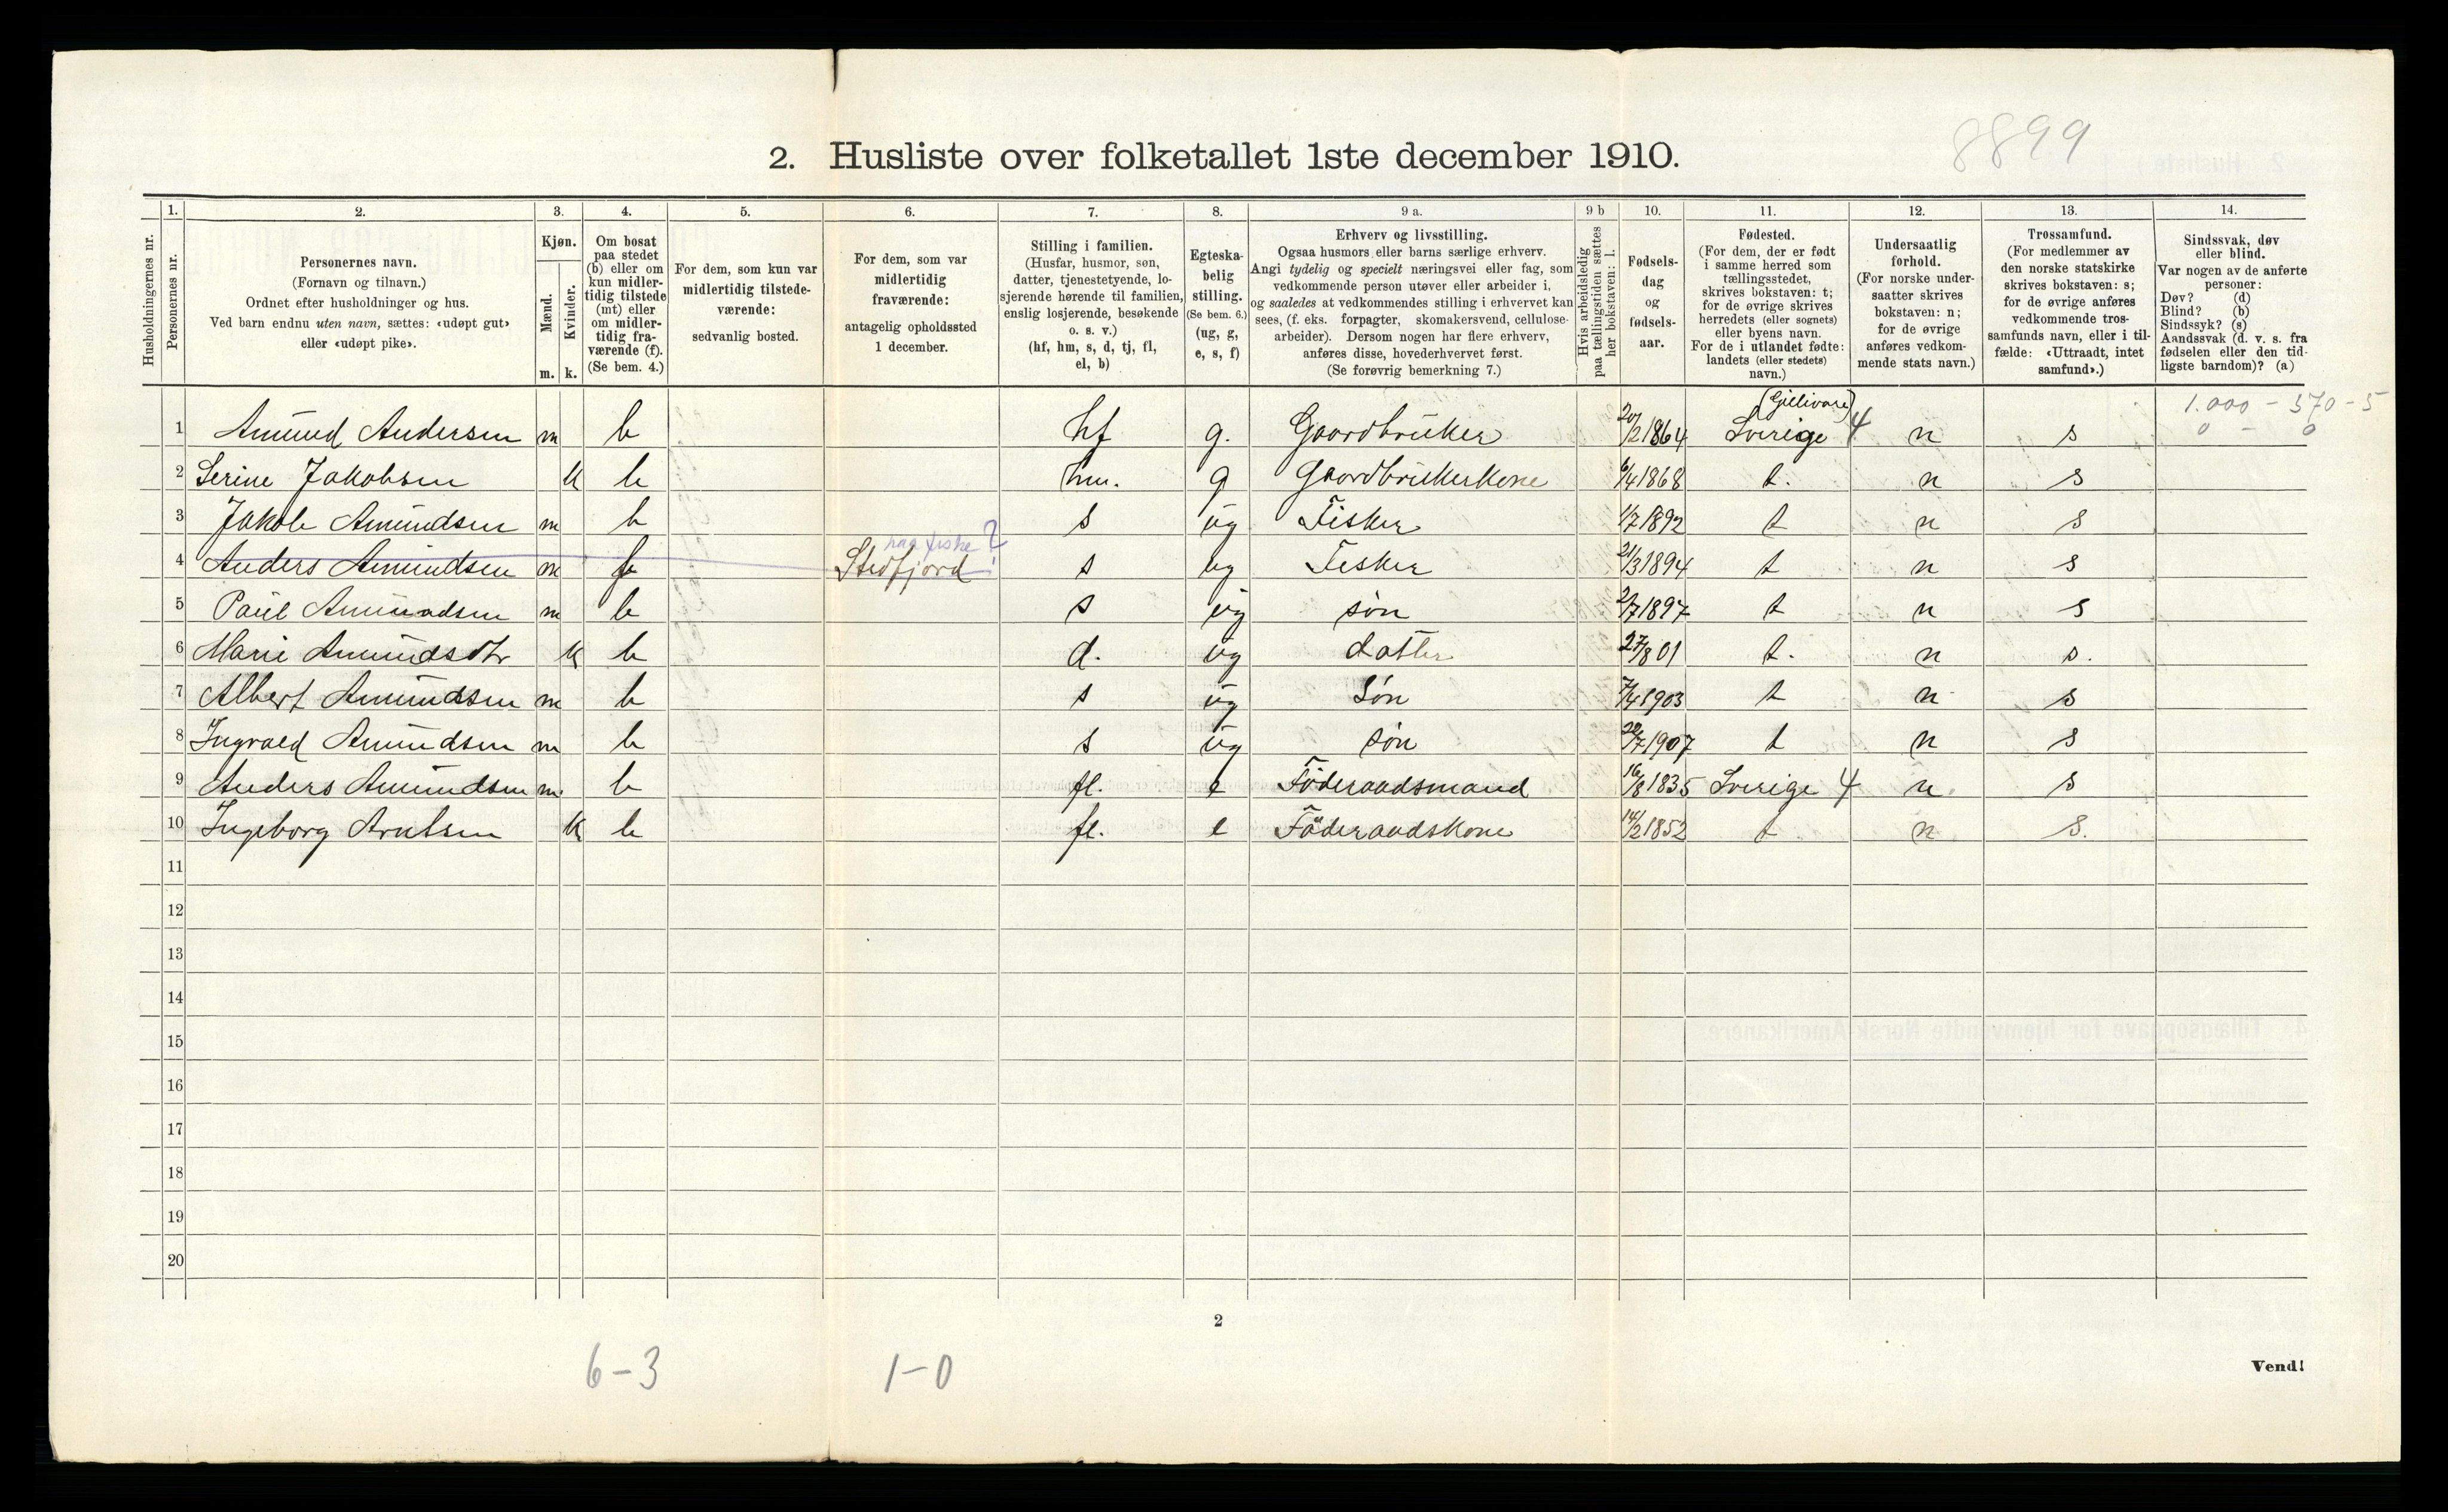 8899
2. Husliste over folketallet 1ste december 1910.
Husholdningernes nr.
1.
Personernes nr.
2.
Personernes navn.
(Fornavn og tilnavn.)
Ordnet efter husholdninger og hus.
Ved barn endnu uten navn, sættes: «udøpt gut»
eller «udøpt pike».
3.
Kjøn.
Mænd.
Kvinder.
m. k.
4.
Om bosat
paa stedet
(b) eller om
kun midler-
tidig tilstede
(mt) eller
om midler-
tidig fra-
værende (f).
(Se bem. 4.)
5.
For dem, som kun var
midlertidig tilstede-
værende:
sedvanlig bosted.
6.
For dem, som var
midlertidig
fraværende:
antagelig opholdssted
1 december.
7.
Stilling i familien.
(Husfar, husmor, søn,
datter, tjenestetyende, lo-
sjerende hørende til familien,
enslig losjerende, besøkende
o. s. v.)
(hf, hm, s, d, tj, fl,
el, b)
8.
Egteska-
belig
stilling.
(Se bem. 6.)
(ug, g,
e, s, f)
9 a.
Erhverv og livsstilling.
Ogsaa husmors eller barns særlige erhverv.
Angi tydelig og specielt næringsvei eller fag, som
vedkommende person utøver eller arbeider i,
og saaledes at vedkommendes stilling i erhvervet kan
sees, (f. eks. forpagter, skomakersvend, cellulose-
arbeider). Dersom nogen har flere erhverv,
anføres disse, hovederhvervet først.
(Se forøvrig bemerkning 7.)
9 b
Hvis arbeidsledig
paa tællingstiden sættes
her bokstaven: l.
10.
Fødsels-
dag
og
fødsels-
aar.
11.
Fødested.
(For dem, der er født
i samme herred som
tællingsstedet,
skrives bokstaven: t;
for de øvrige skrives
herredets (eller sognets)
eller byens navn.
For de i utlandet fødte:
landets (eller stedets)
navn.)
12.
Undersaatlig
forhold.
(For norske under-
saatter skrives
bokstaven: n;
for de øvrige
anføres vedkom-
mende stats navn.)
13.
Trossamfund.
(For medlemmer av
den norske statskirke
skrives bokstaven: s;
for de øvrige anføres
vedkommende tros-
samfunds navn, eller i til-
fælde: «Uttraadt, intet
samfund».)
14.
Sindssvak, døv
eller blind.
Var nogen av de anførte
personer:
Døv? (d)
Blind? (b)
Sindssyk? (s)
Aandssvak (d. v. s. fra
fødselen eller den tid-
ligste barndom)? (a)
(Gillivare) 1.000 - 570 - 5
0 - 0
1 Amund Andersen m b hf g. Gaardbruker 20/2 1864 Sverige 4 n s
2 Serine Jakobsen k b hm. g Gaardbrukerkone 6/4 1868 t. n s
3 Jakob Amundsen m b s ug Fisker 1/7 1892 t n s
?
4 Anders Amundsen m f s ug Fisker 21/3 1894 t n s
5 Paul Amundsen m b s ug søn 2/7 1897 t n s
6 Marie Amundsdtr k b d. ug datter 27/8 01 t. n s.
7 Albert Amundsen m b s ug Søn 7/4 1903 t n s
8 Ingvald Amundsen m b s ug søn 1907 t n s
9 Anders Amundsen m b fl. e Föderaadsmand 16/8 1835 Sverige 4 n s
10 Ingeborg Arntsen k b fl. e Föderaadskone 14/2 1852 t n s.
11
12
13
14
15
16
17
18
19
20
2
6-3 1-0
Vend!